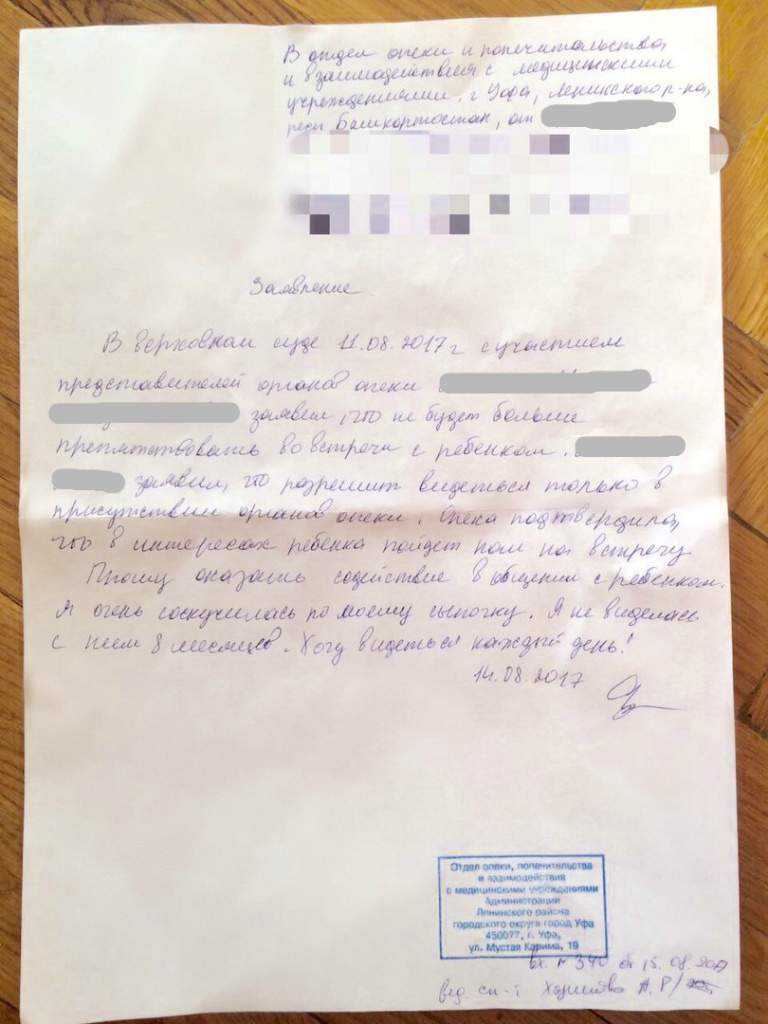 В отдел опеки и попечительства
и взаимодействия с медицинскими
учреждениями. г Уфа, Ленинского р-на,
респ Башкортостан, от
Заявление.
В верховном суде 11.08.2017 г с участием
представителей органов опеки
заявил, что не будет больше
препятствовать во встречи с ребенком.
заявил, что разрешит видеться только в
присутствии органов опеки. Опека подтвердила,
что в интересах ребенка пойдет нам на встречу
Прошу оказать содействие в общении с ребенком.
Я очень соскучилась по моему сыночку. Я не виделась
с ним 8 месяцев. Хочу видеться каждый день!
14.08.2017
Отдел опеки, попечительства
и взаимодействия
с медицинскими учреждениями
Администрации
Ленинского района
городского округа город Уфа
450077, г. Уфа,
ул. Мустая Карима, 19
вх. № 340 от 15.08.2017
вед сп-т А.Р/